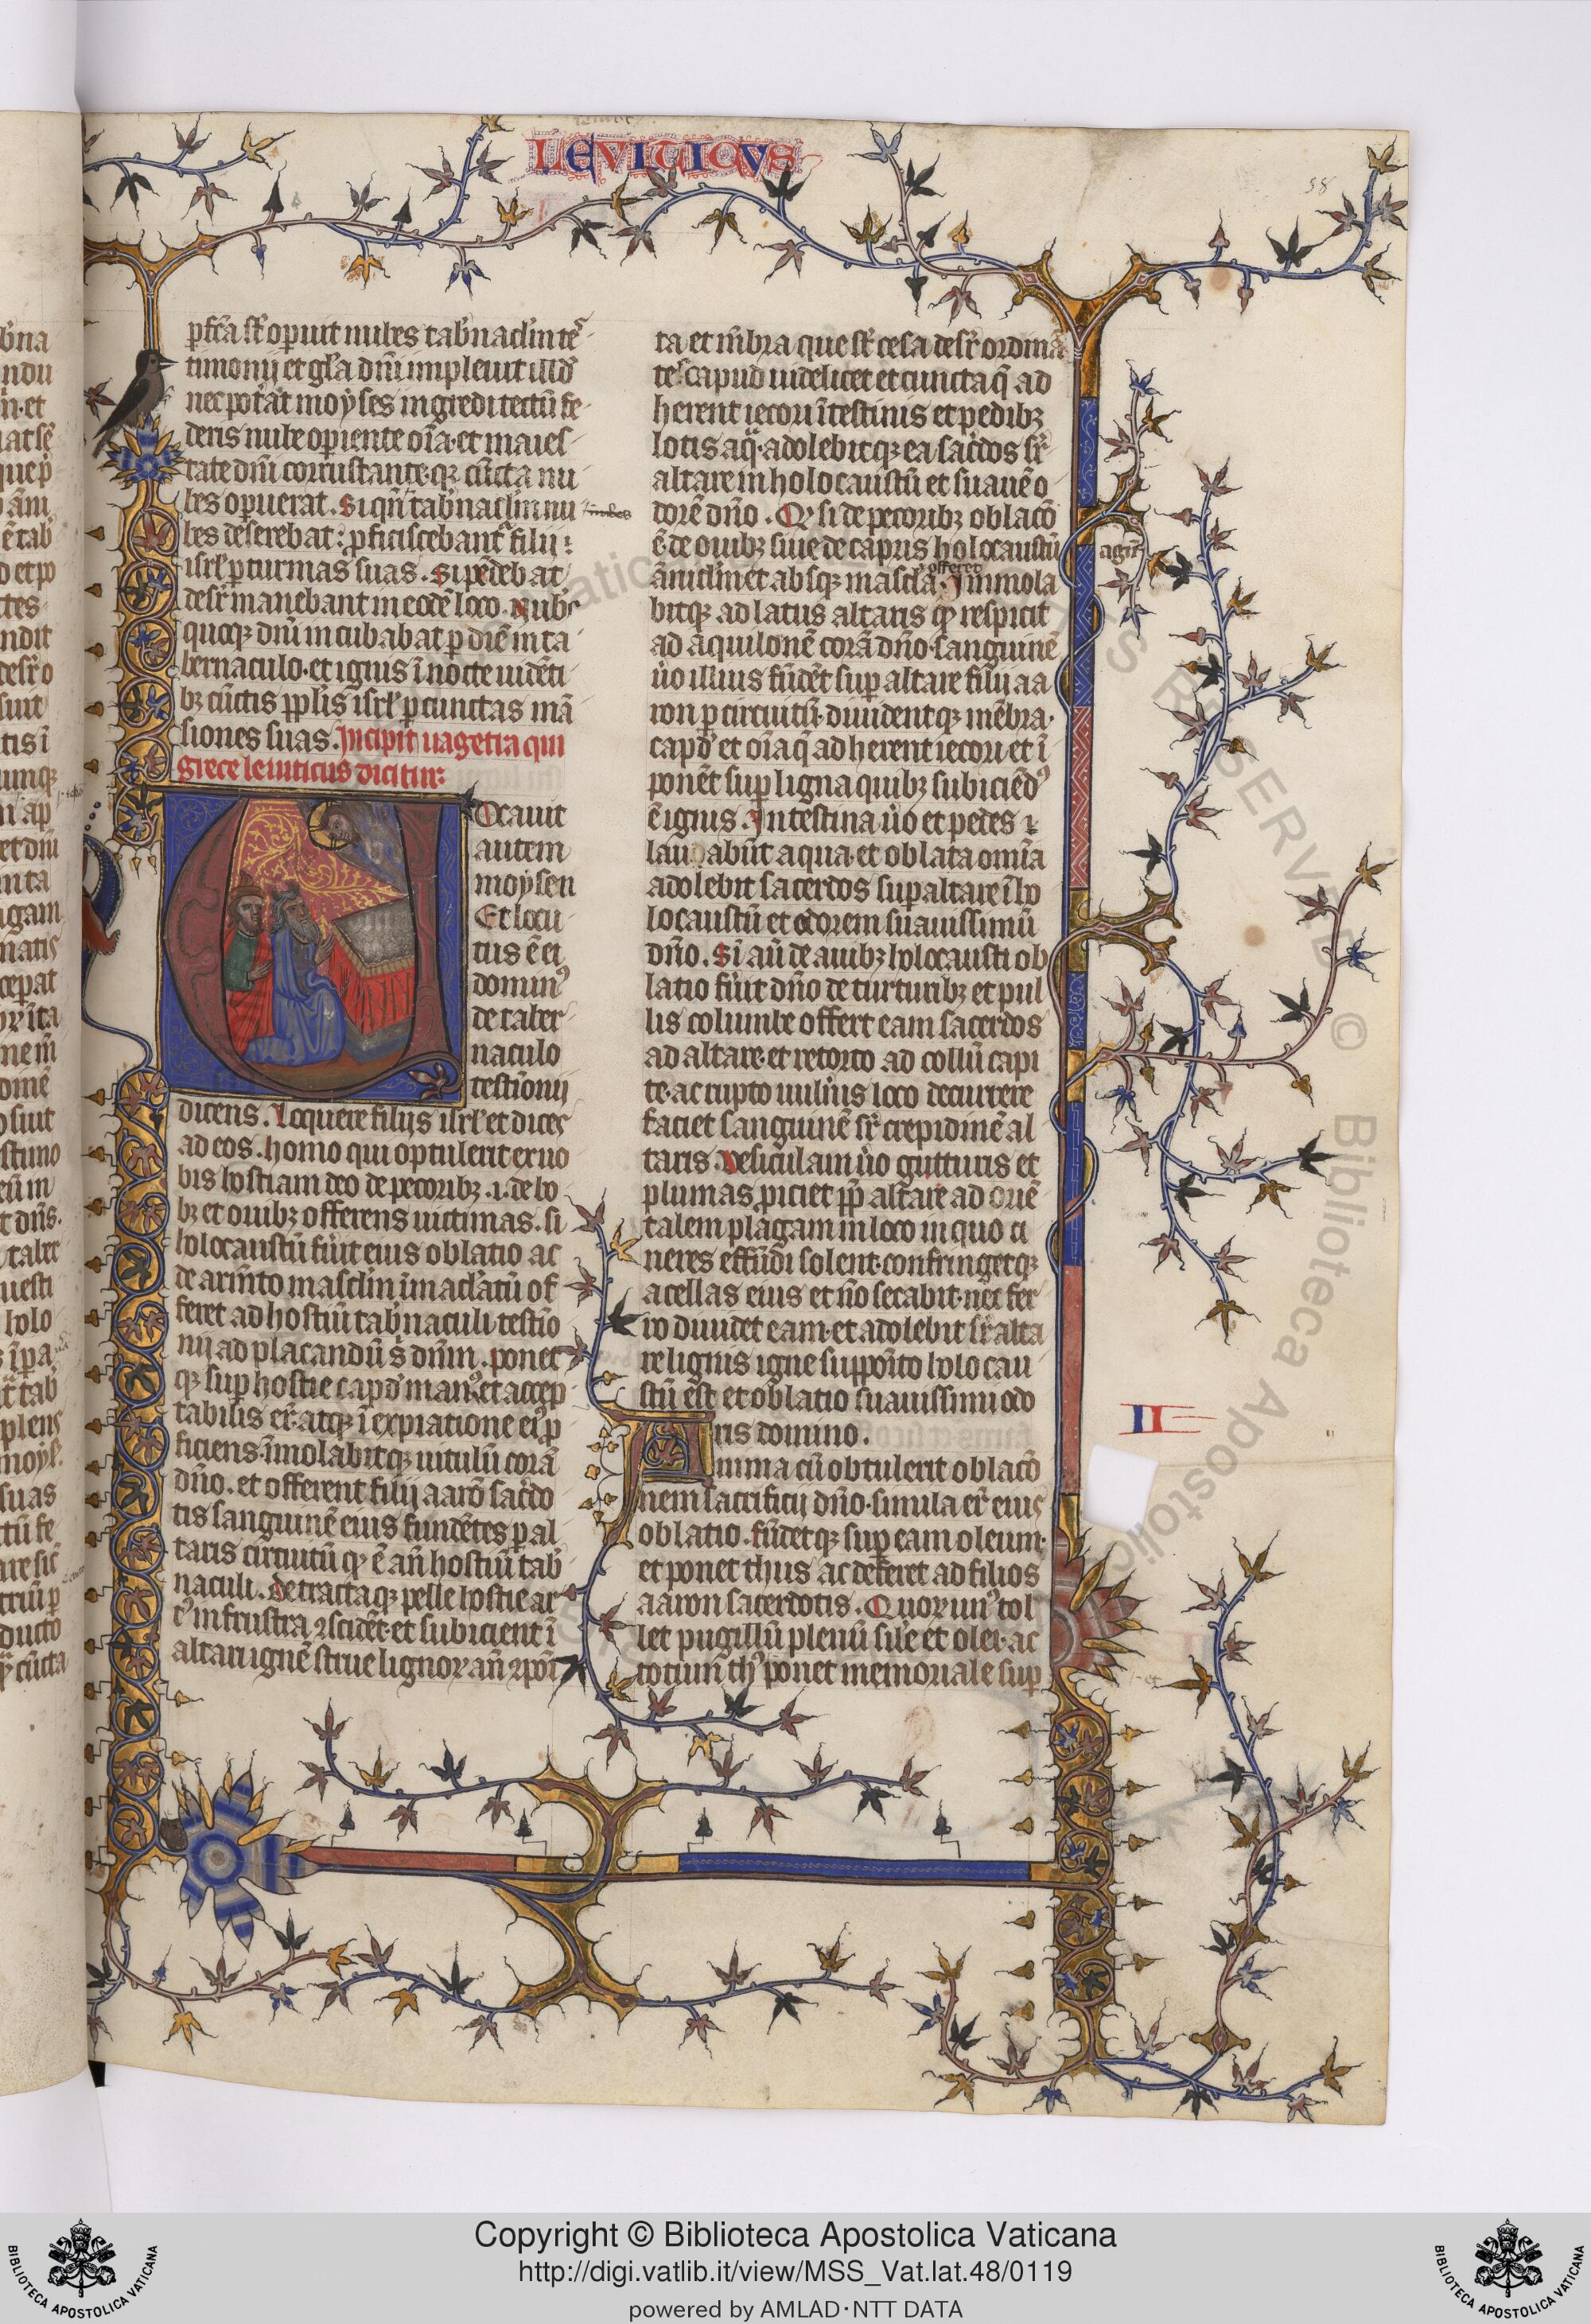 LEVITICVS
58
pfcā sr̄ opuit nubes tab̾nac̄lm te
timonij et gl̄a dn̄i impleuit illd̾
nec pot̾at moyses ingredi tectū fe
deris nube opiente oīa · et maies
tate dn̄i coruscante · qz cūcta nu
bes opuerat . Si qn̄ tab̾nac̄lm nu
bes deserebat : pficiscebant̾ filij
isrl̄ p turmas suas . Si pēdebat
desr̄ manebant in eodē loco . Nub̾s
quoqz dn̄i incubabat p diē in ta
bernaculo · et ignis ī nocte uidēti
bz cūctis pplis isrl̄ p cunctas mā
siones suas . Incipit uagetra qui
grece leuiticus dicitur
Ocauit
autem
moysen
Et locu
tus ē ei
domin⁹
de taber
naculo
testīonij
dicens . Loquere filijs isrl̄ et dices
ad eos . homo qui optulerit ex uo
bis hostiam deo de pecoribz .i. de bo
bz et ouibz offerens uictimas . si
holocaustū fu̾it eius oblatio ac
de arm̄to mascl̄m īmac̄latū of
feret ad hostiū tab̾naculi testīo
nij ad placandū s̾ dn̄m . ponet
qz sup hostie capd̾ man⁹ et accep
tabilis er̄ atqz ī expiatione ei⁹ p
ficiens · īmolabitqz uitulū corā
dn̄o . et offerent filij aarō sac̾do
tis sanguinē eius fundētes p al
taris circuitū qd̾ ē an̄ hostiū tab̾
naculi . Detractaqz pelle hostie ar
t⁹ in frustra ꝯcidēt · et subicient ī
altari ignē strue lignoꝝ an̄ ꝯpoī
ta et m̄bra que sr̄ cesa desr̄ ordinā
tes capud uidelicet et cuncta q̄ ad
herent iecori ītestinis et pedibz
lotis aq̄ · adolebitqz ea sac̾dos sr̄
altare in holocaustū et suauē o
dorē dn̄o . Qd̾ si de pecoribz oblacō
ē de ouibz siue de capris holocaustū
āniclm̄ et absqz mascl̄a offeret . Immola
agn̄
bitqz ad latus altaris qd̾ respicit
ad aquilonē corā dn̄o · sanguinē
u̾o illius fūdēt sup altare filij aa
ron p circuitū · diuidentqz mēbra ·
capd̾ et oīa q̄ adherent iecori et ī
ponēt sup ligna quibz subiciēd⁹
ē ignis . Intestina u̾o et pedes
lauabūt aqua · et oblata omīa
adolebit sacerdos sup altare ī ho
locaustū et odorem suauissimū
dn̄o . Si aū de auibz holocausti ob
latio fu̾it dn̄o de turturibz et pul
lis columbe offert eam sacerdos
ad altare · et retorto ad collū capi
te · ac rupto uuln̾is loco decurrere
faciet sanguinē sr̄ crepidinē al
taris . Vesiculam u̾o gutturis et
plumas piciet pp̄ altare ad oriē
talem plagam in loco in quo ci
neres effūdi solent · confringetqz
acellas eius et n̄o secabit · nec fer
ro diuidet eam · et adolebit sr̄ alta
re lignis igne supposīto holocau
stū est et oblatio suauissimi odo
ris domino .
II
Anima cū obtulerit oblacō
nem sacrificij dn̄o · simila er̄ eius
oblatio . fūdetqz sup eam oleum ·
et ponet thus ac deferet ad filios
aaron sacerdotis . Quoꝝ un⁹ tol
let pugillū plenū sil̄e et olei · ac
totum th⁹ ponet memoriale sup
Copyright © Biblioteca Apostolica Vaticana
http://digi.vatlib.it/view/MSS_Vat.lat.48/0119
powered by AMLAD·NTT DATA
BIBLIOTECA APOSTOLICA VATICANA
BIBLIOTECA APOSTOLICA VATICANA